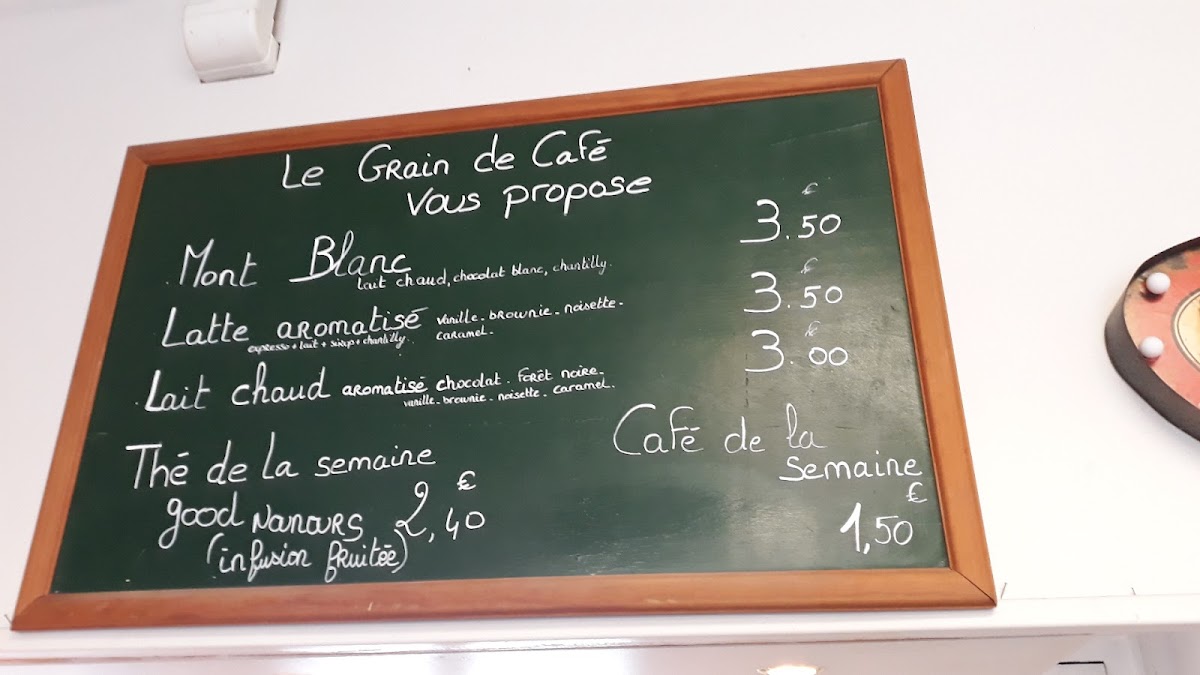 Le Grain de Café
Vous propose
Mont Blanc 3.50 €
lait chaud, chocolat blanc, chantilly.
Latte aromatisé vanille - brownie - noisette - 3.50 €
expresso + lait + sirop + chantilly. caramel -
Lait chaud aromatisé chocolat - Forêt noire - 3.00 €
vanille - brownie - noisette - caramel -
Thé de la semaine
good Nanours 2,40 €
(infusion fruitée)
Café de la
semaine
1,50 €